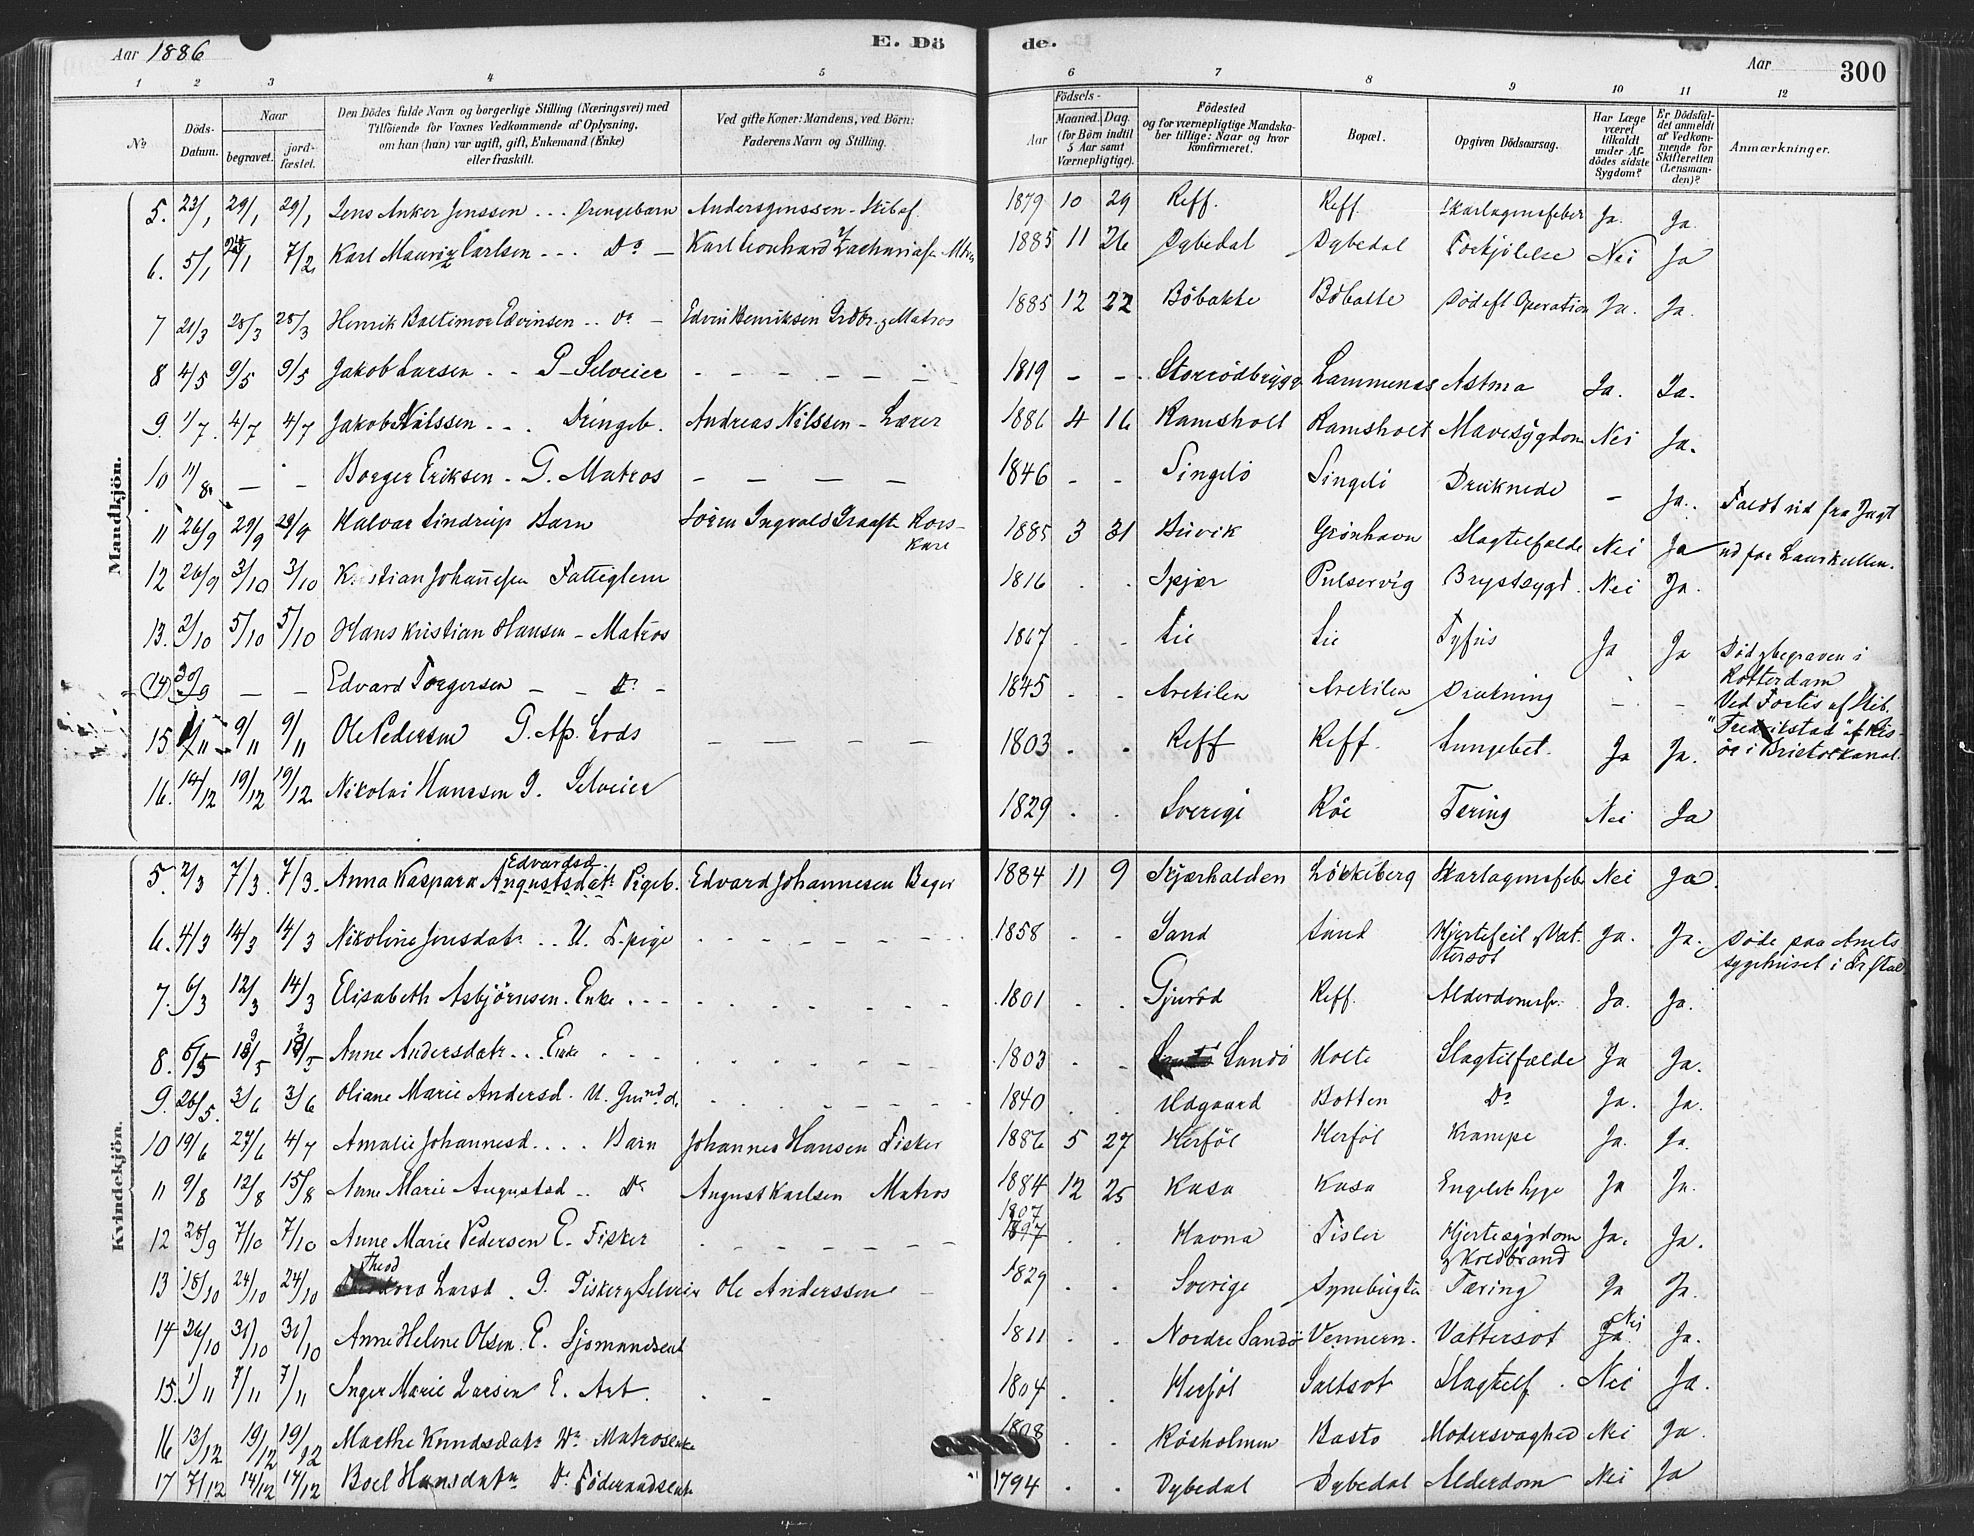 Aar 1886 E. Dö de. Aar 300
1 2 3 4 5 6 7 8 9 10 11 12
No Döds-Datum. Naar begravet. jord-fæstet. Den Dödes fulde Navn og borgerlige Stilling (Næringsvei) med Tilföiende for Voxnes Vedkommende af Oplysning, om han (hun) var ugift, gift, Enkemand (Enke) eller fraskilt. Ved gifte Koner: Mandens, ved Börn: Faderens Navn og Stilling. Födsels- Aar Maaned. Dag. (for Börn indtil 5 Aar samt Værnepligtige). Födested og for værnepligtige Mandska-ber tillige: Naar og hvor konfirmeret. Bopæl. Opgiven Dödsaarsag. Har Læge været tilkaldt under Af-dödes sidste Sygdom? Er Dödsfal-det anmeldt af Vedkom-mende for Skifteretten (Lensman-den)? Anmærkninger.
Mandkjön.
5. 23/1 29/1 29/1 Jens Anker Jenssen ... Drengebarn Anders Jenssen - Skibsf. 1879 10 29 Reff. Reff. Skarlagensfeber Ja. Ja.
6. 5/1 7/2 Karl Mauriz Carlsen --- Do - Karl Leonhard Zachariass. 1885 11 26 Dybedal Dybedal Forkjölelse Nei Ja
7 21/3 28/3 28/3 Henrik Baltimor Edvinsen .. Do - Edvin Henriksen Grdbr. & Matros 1885 12 22 Böbakke Böbakke Död eft Operation Ja. Ja.
8 4/5 9/5 9/5 Jakob Larsen .. G - Selveier - - - - - - 1819 - - Storrödbrygg Lammenes Astma Ja. Ja.
9. 1/7. 4/7 4/7 Jakob Nilssen - .. Drengeb. Andreas Nilssen - Lærer 1886 4 16 Ramsholt Ramsholt Mavesygdom Nei Ja.
10 11/8. - - Borger Eriksen - G. Matros - - - - 1846 - - Singelö Singelö Druknede - Ja. Faldt ud fra Jagt
11 26/9 29/9 29/9 Halvar Lindrup Barn Sören Ingvald 1885 3 31 Buvik Grönhavn Slagtilfælde Nei Ja ud for Lauskullen.
12 26/9 3/10 3/10 Kristian Johannesen Fattiglem 1816 . . Spjær Pulservig Brystsygd. Nei Ja.
13. 2/10 5/10 5/10 Hans Kristian Hansen - Matros 1867 . . Lie Lie Tyfus Ja Ja Död & begraven i Rotterdam
(14) 30/9 - - Edvard Torgersen - - Do - 1845 - - Arekilen Arekilen Drukning - - Ved Forlis af Skib. "Fredrikstad" af i Bristolkanal.
15 9/11 9/11 Ole Pedersen G. Af. Lods - - - - 1803 . . Reff Reff. Lungebet. Ja Ja.
16. 14/12 19/12 19/12 Nikolai Hanssen G. Selveier 1829 . . Sverige Röe Tæring Nei Ja
Kvindekjön.
5. 2/3 7/3. 7/3. Anna Kaspara Augustsdatr Edvardsd. Pigeb. Edvard Johannesen 1884 11 9 Skjærhalden Lökkeberg Skarlagensfeb Nei Ja.
6. 4/3 14/3 14/3 Nikoline Jensdatr .. U. T. pige 1858 - - Sand Sand Hjertefeil & Vattersot Ja. Ja. Döde paa Amts sygehuset i Frstad.
7. 6/3 12/3 14/3 Elisabeth Asbjörnsen. Enke 1801 . . Gjuröd Reff. Alderdomsk. Ja. Ja.
8. 6/5 Anne Andersdatr .. Enke 1803 . . Sandö Holte Slagtilfælde Ja Ja.
9. 26/5. 3/6 3/6 Oliane Marie Andersd. U. 1840 . . Utgaard Botten Do Ja. Ja.
10 19/6 27/6 4/7 Amalie Johannesd. ... Barn Johannes Hansen Fisker 1886 5 27 Herföl Herföl Krampe Ja. Ja.
11 9/8 12/8 15/8 Anne Marie Augustsd .. Do August Karlsen Matros 1884 12 25 Kasa Kasa Engelsk Syge Ja Ja.
12 28/9 7/10 7/10 Anne Marie Pedersen E. Fisker 1807 . . Havna Tisler Hjertesygdom & Koldbrand Ja. Ja.
13 18/10 24/10 24/10 Theodora Larsd. G. Fisker & Selveier Ole Anderssen 1829 . . Sverige Synebugten Tæring Ja Ja.
14 26/10 31/10 31/10 Anne Helene Olsen. E. Sjömandsenk 1811 . . Nordre Sandö Vennern. Vattersot Nei Ja.
15. 1/11 7/11 7/11 Inger Marie Larsen E. Arb. 1804 . . Herföl Saltsot Slagtilf. Nei Ja.
16 13/12 19/12 19/12 Marthe Knudsdatr Do Matrosenke 1808 . . Kösholmen Basto Modersvaghed Nei Ja.
17 7/12 14/12 14/12 Boel Hansdatr Do Föderaadsenk 1794 . . Dybedal Dybedal Alderdom Nei Ja